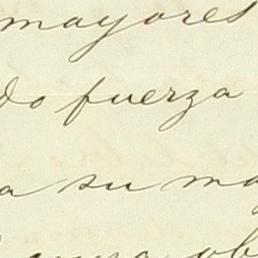 mayores
do fuerza
a su ma